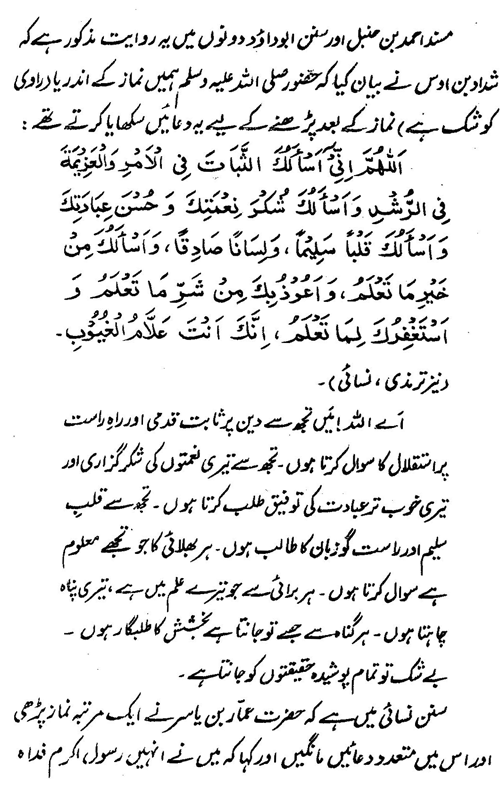 مسند احمد بن حنبل اور سنن ابوداؤد دونوں میں یہ روایت مذکور ہے کہ
شداد بن اوس نے بیان کیا کہ حضور صلی اللہ علیہ وسلم ہمیں نماز کے اندر یا (راوی
کو شک ہے) نماز کے بعد پڑھنے کے لیے یہ دعائیں سکھایا کرتے تھے:
اَللّٰهُمَّ اِنِّیْ اَسْأَلُكَ الثَّبَاتَ فِی الْاَمْرِ وَالْعَزِیْمَةَ
فِی الرُّشْدِ وَاَسْأَلُكَ شُكْرَ نِعْمَتِكَ وَحُسْنَ عِبَادَتِكَ
وَاَسْأَلُكَ قَلْبًا سَلِیْمًا، وَلِسَانًا صَادِقًا، وَاَسْأَلُكَ مِنْ
خَیْرِ مَا تَعْلَمُ، وَاَعُوْذُ بِكَ مِنْ شَرِّ مَا تَعْلَمُ وَ
اَسْتَغْفِرُكَ لِمَا تَعْلَمُ، اِنَّكَ اَنْتَ عَلَّامُ الْغُیُوْبِ۔
(نیز ترمذی، نسائی)۔
اے اللہ! میں تجھ سے دین پر ثابت قدمی اور راہِ راست
پر استقلال کا سوال کرتا ہوں۔ تجھ سے تیری نعمتوں کی شکر گزاری اور
تیری خوب تر عبادت کی توفیق طلب کرتا ہوں۔ تجھ سے قلبِ
سلیم اور راست گو زبان کا طالب ہوں۔ ہر بھلائی کا جو تجھے معلوم
ہے سوال کرتا ہوں۔ ہر برائی سے جو تیرے علم میں ہے، تیری پناہ
چاہتا ہوں۔ ہر گناہ سے جسے تو جانتا ہے بخشش کا طلبگار ہوں۔
بے شک تو تمام پوشیدہ حقیقتوں کو جانتا ہے۔
سنن نسائی میں ہے کہ حضرت عمّار بن یاسر نے ایک مرتبہ نماز پڑھی
اور اس میں متعدد دعائیں مانگیں اور کہا کہ میں نے انہیں رسول، اکرم فداہ